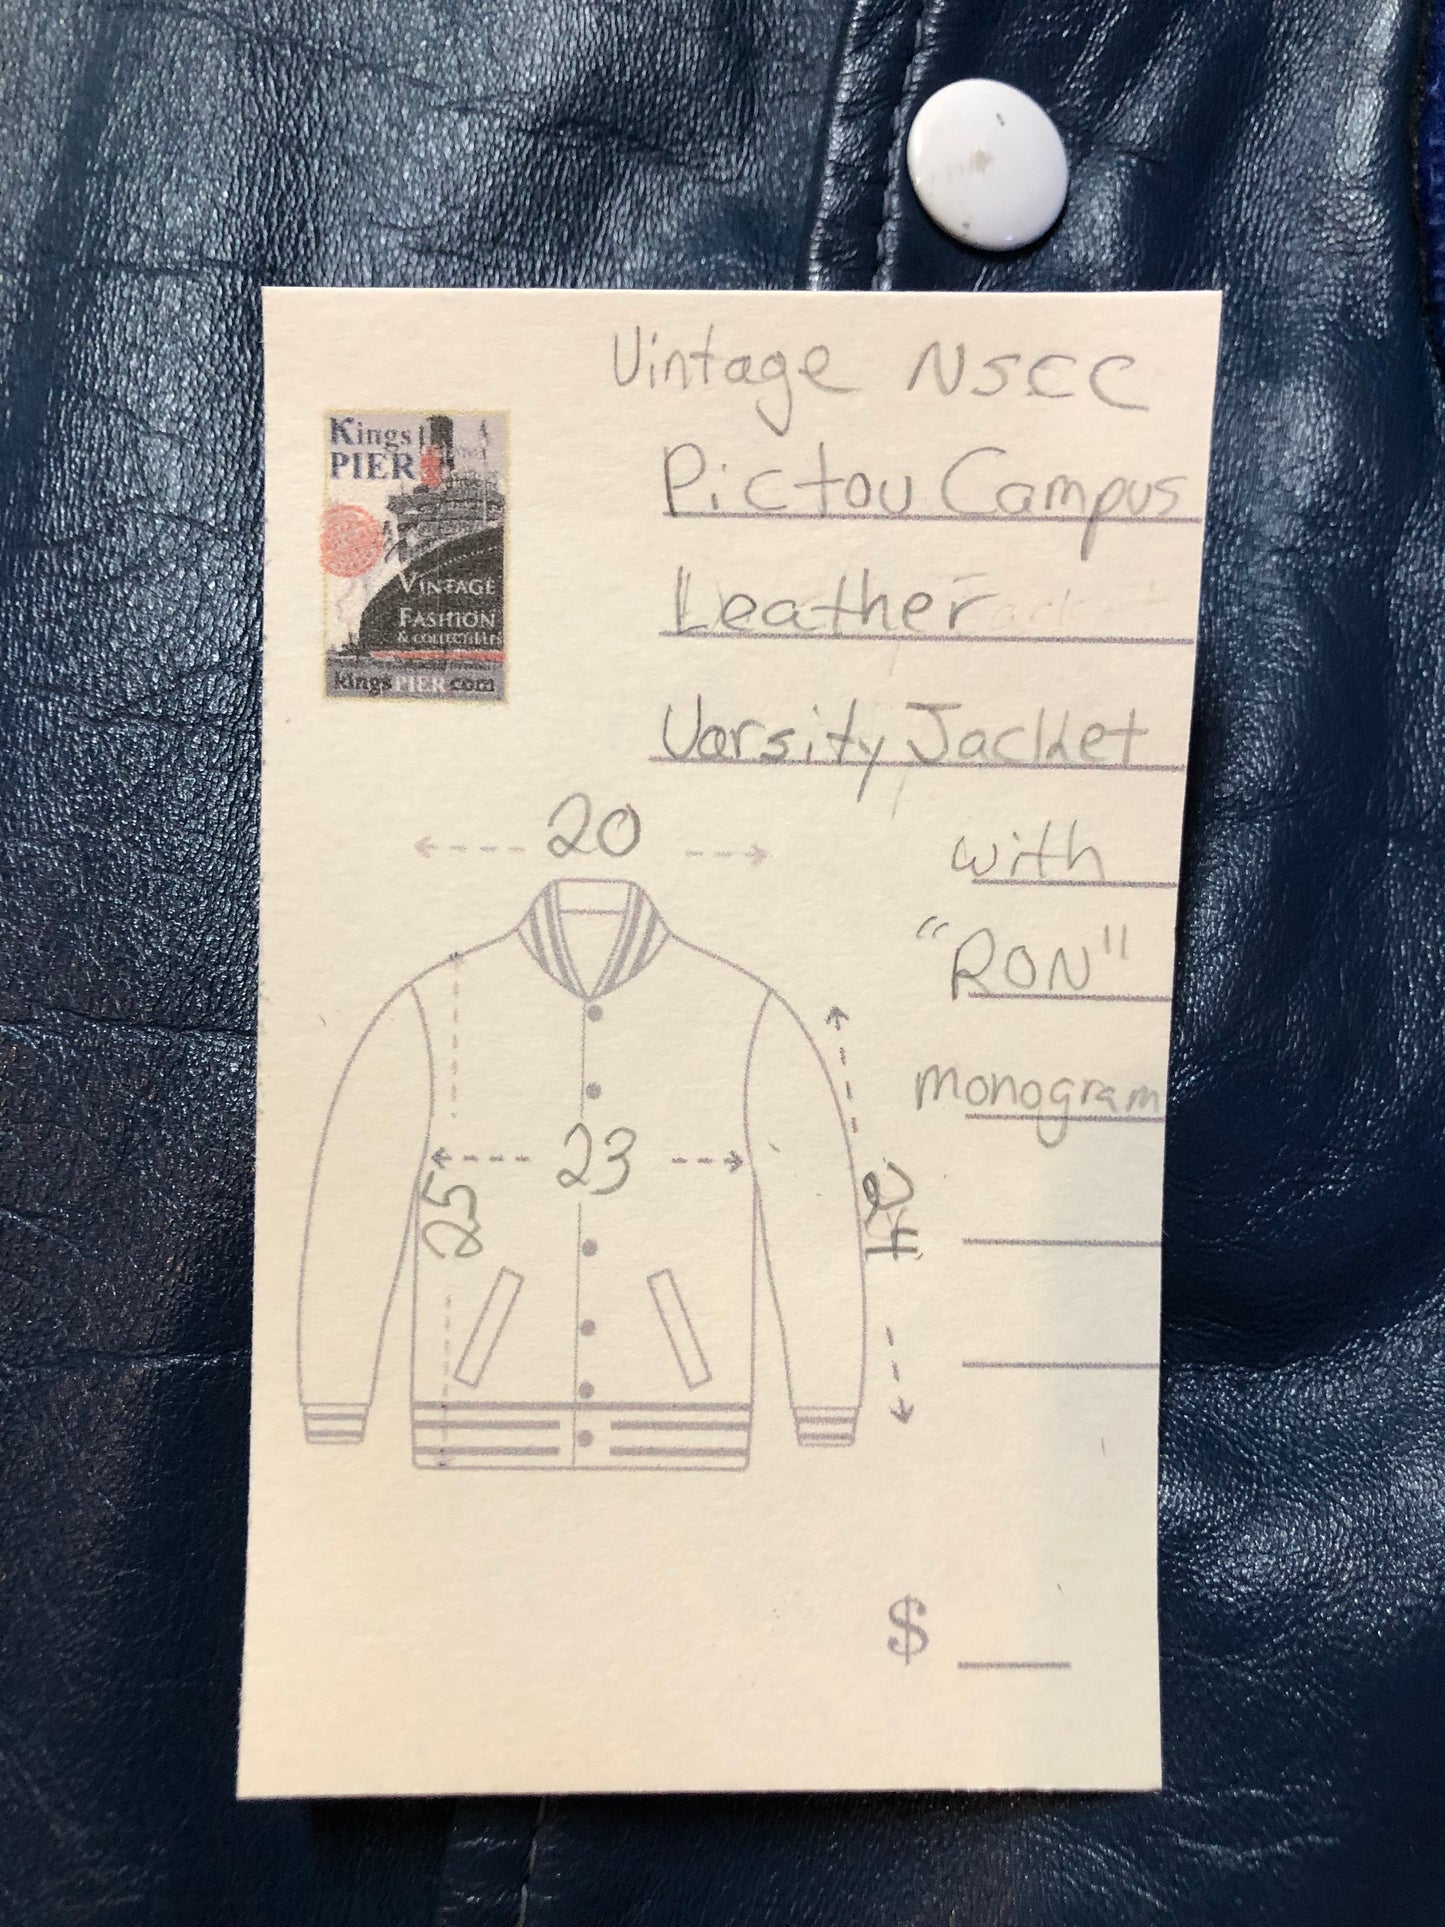 Vintage NSCC
Pictou Campus
Leather
Varsity Jacket
with
"RON"
monogram
Kings
PIER
VINTAGE
FASHION
& COLLECTIBLES
kingsPIER.com
20
23
25
24
$